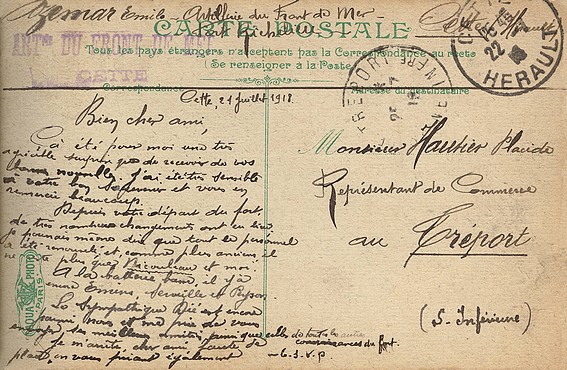 Azemar Emile Artillerie du Front de Mer
Fort Richelieu Cette, Hérault
CARTE POSTALE
ARTie DU FRONT DE MER
CETTE
Tous les pays étrangers n'acceptent pas la Correspondance au recto
( Se renseigner à la Poste )
Correspondance
Adresse du destinataire
CETTE
22
HERAULT
LE TREPORT
SEINE INFRE
Cette, 21 juillet 1918.
Bien cher ami,
Ça été pour moi une très
agréable surprise que de recevoir de vos
bonnes nouvelles. J'ai été très sensible
à votre bon souvenir et vous en
remercie beaucoup.
Depuis votre départ du fort,
de très nombreux changements ont eu lieu,
je pourrais même dire que tout le personnel
a été renouvelé et, comme plus anciens, il
ne reste plus que et moi.
A la batterie basse, il y a
encore
La sympathique est encore
parmi nous et me prie de vous
envoyer ses meilleures amitiés, ainsi que celles de toutes les autres
connaissances du fort.
Je m'arrête, cher ami, faute de
place, en vous priant également
— T.S.V.P.
Monsieur Hautier Placide
Représentant de Commerce
au Tréport
(S. Inférieure)
PHOTO
PARIS